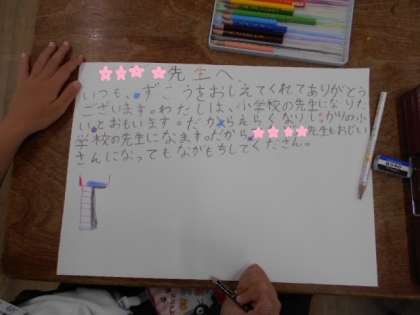 先生へ、
いつも、ずこうおおしえてくれてありがとう
ございます。わたしは、小学校の先生になりた
いとおもいます。だからえらくなり しがりの小
学校の先生になます。だから、先生もおじい
さんになってもなかもちしてくださん。